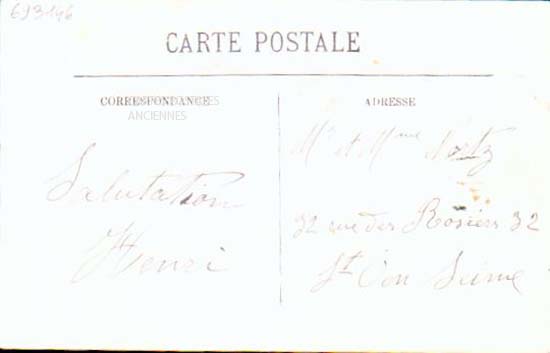 613146
CARTE POSTALE
CORRESPONDANCE
ANCIENNES
ADRESSE
Salutation
Henri
Mr et Mme
32 rue des Rosiers 32
St Ouen Seine